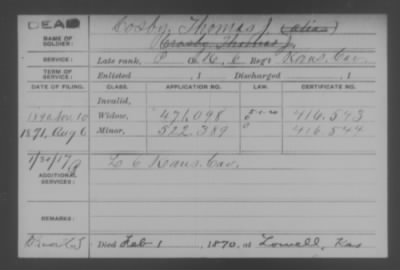 DEAD
Cosby, Thomas J. (alias)
NAME OF SOLDIER: Crosby Thomas J.
SERVICE: Late rank, P Co. K, 6 Reg't Kans. Cav.
TERM OF SERVICE: Enlisted , 1 Discharged , 1
DATE OF FILING. CLASS. APPLICATION NO. LAW. CERTIFICATE NO.
Invalid,
1890 Nov. 10 Widow, 471,098 416.543
1891, Aug 6 Minor, 522,389 416.544
7/30/17
ADDITIONAL SERVICES: L 6 Kans. Cav.
REMARKS:
Died Feb 1 , 1870, at Lowell, Kas